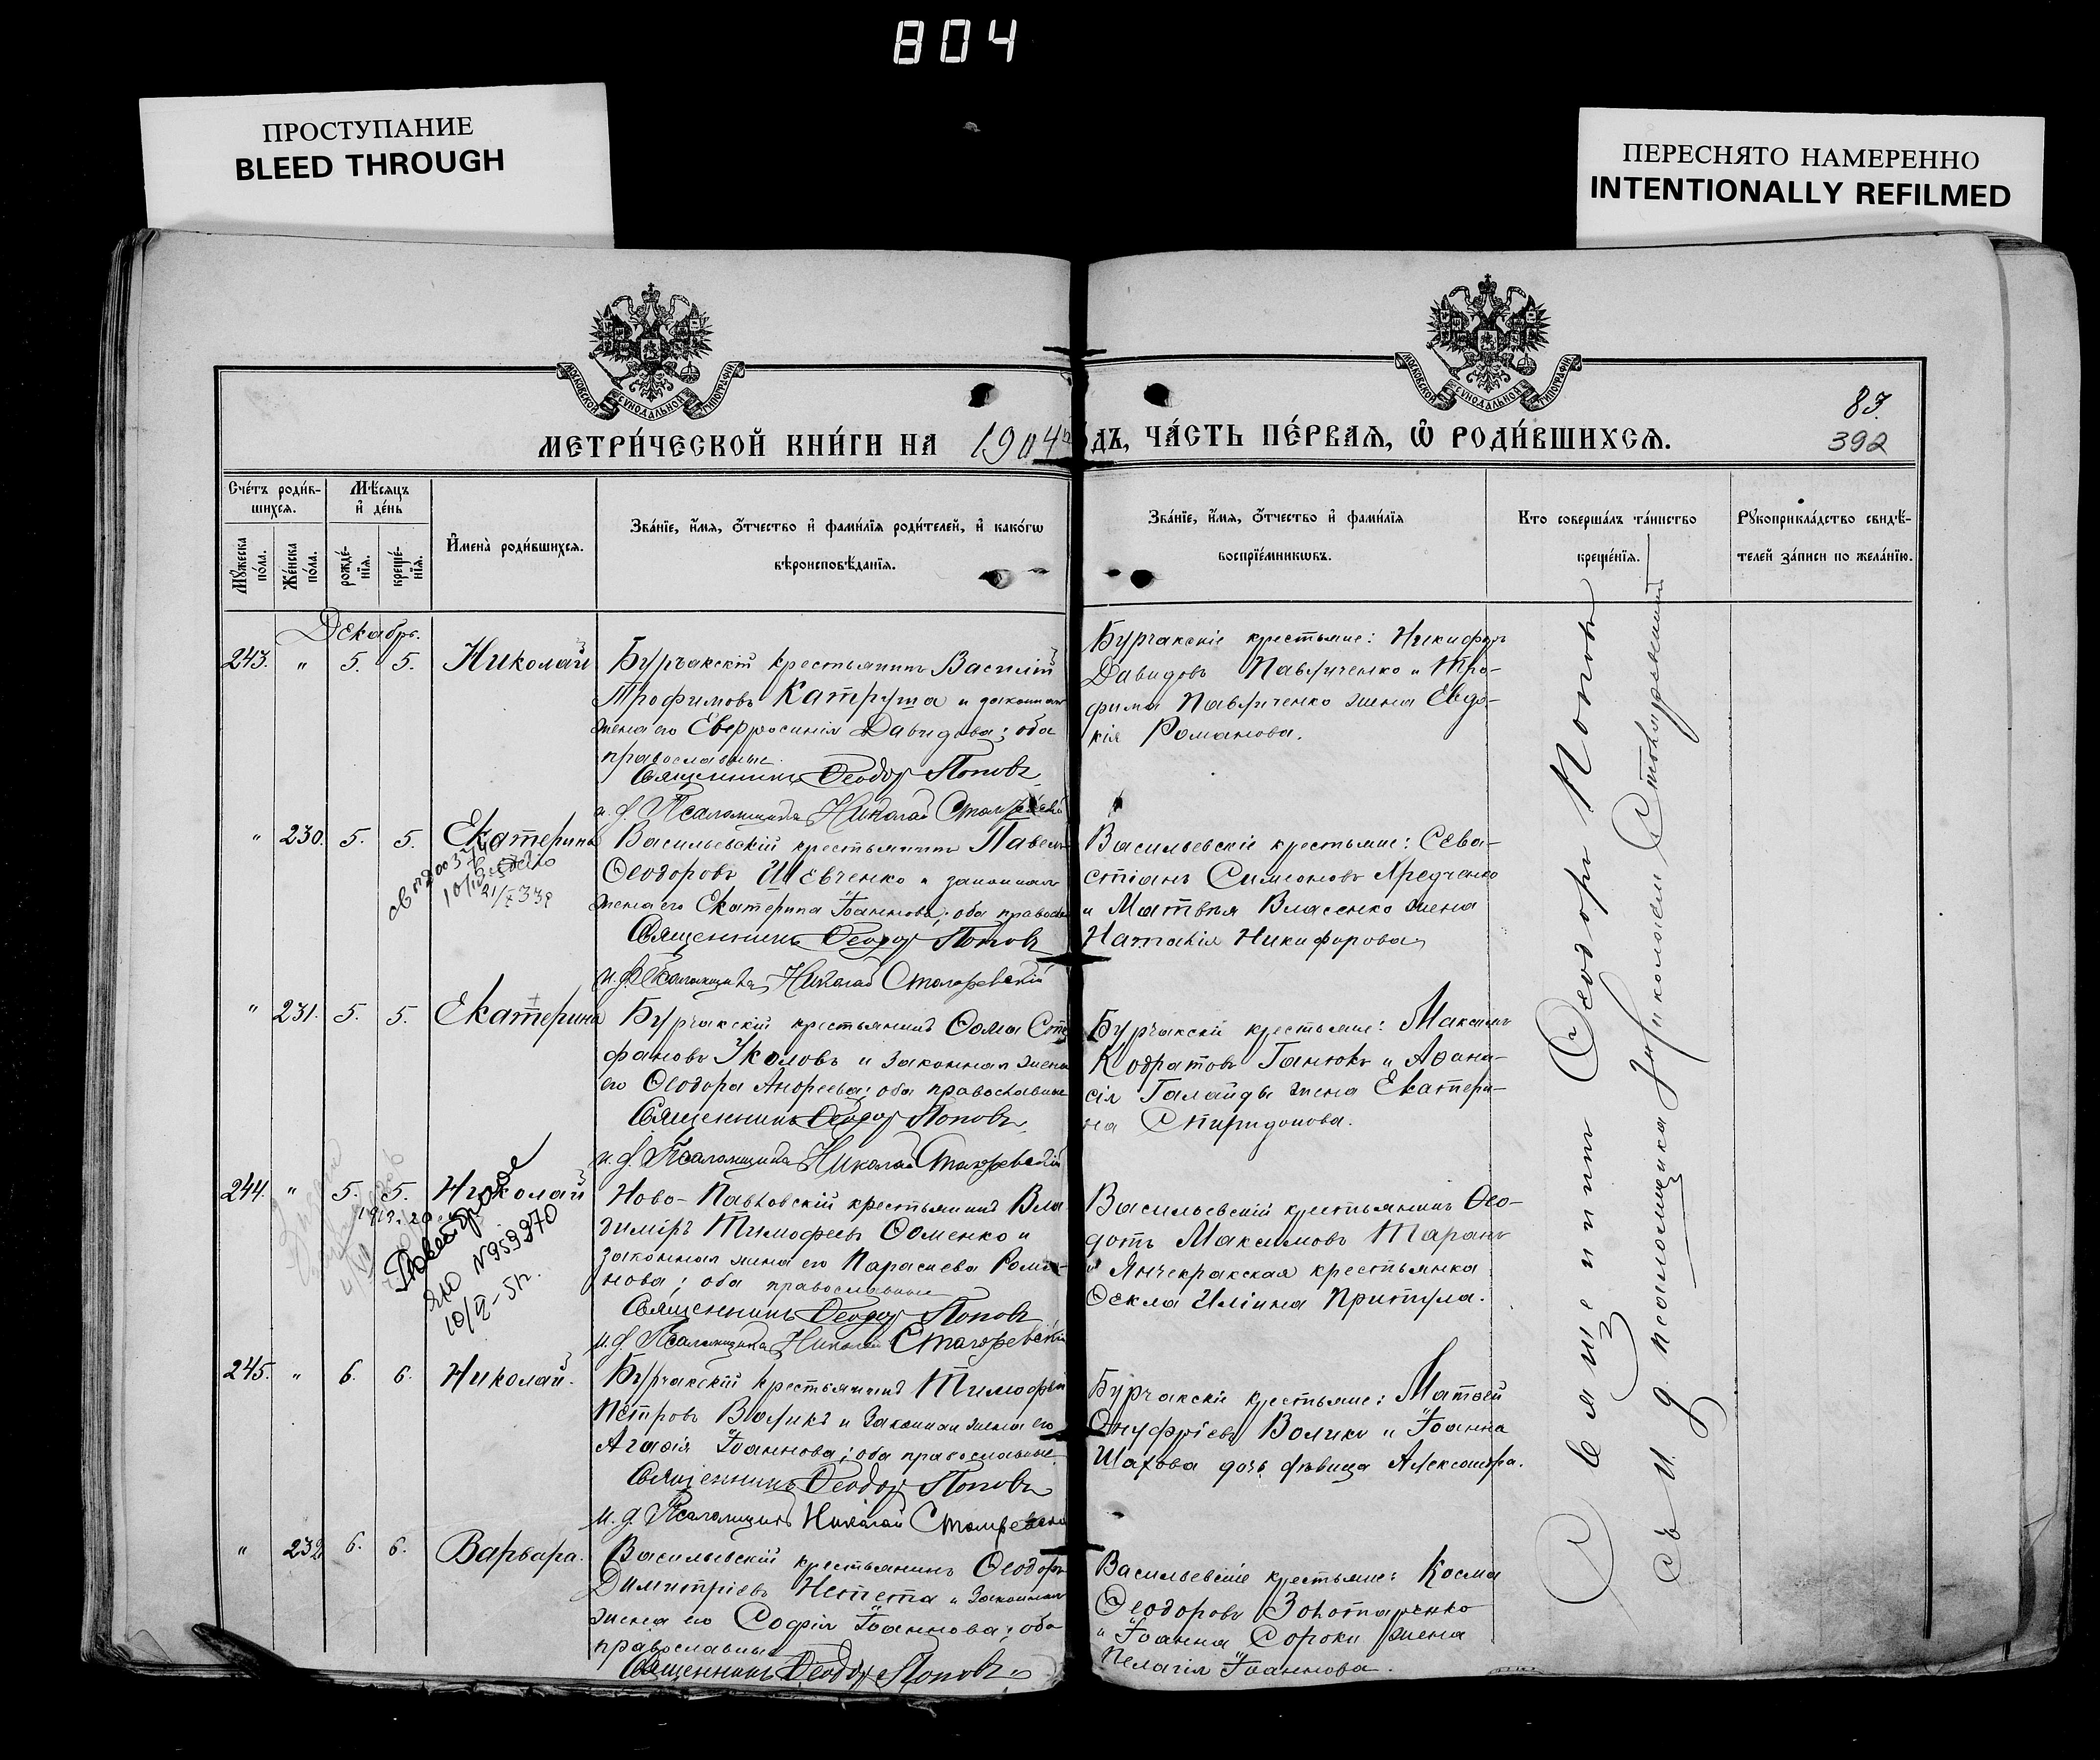 804
ПРОСТУПАНИЕ
BLEED THROUGH
ПЕРЕСНЯТО НАМЕРЕННО
INTENTIONALLY REFILMED
МОСКОВСКОЙ СѴНОДАЛЬНОЙ ТИПОГРАФІИ
МОСКОВСКОЙ СѴНОДАЛЬНОЙ ТИПОГРАФІИ
83.
392
МЕТРИ́ЧЕСКОЙ КНИ́ГИ НА 1904 дъ, ЧА́СТЬ ПЕ́РВАЯ, Ѡ РОДИ́ВШИХСЯ.
Сче́тъ роди́вшихся.
Му́жеска по́ла.
Же́нска по́ла.
Мѣ́сяцъ и де́нь
рожде́нїя.
креще́нїя.
Имена̀ роди́вшихся.
Зва́нїе, и́мя, о́тчество и фами́лїя роди́телей, и како́гѡ
вѣроисповѣ́данїя.
Зва́нїе, и́мя, о́тчество и фами́лїя
воспрїе́мникѡвъ.
Кто соверша́лъ та́инство
креще́нїя.
Рꙋкоприкла́дство свидѣ́-
телей за́писи по жела́нїю.
Декабрь.
243. " 5. 5. Николай
Бурчакскій крестьянинъ Василій
Трофимовъ Катруша и законная
жена его Евфросинія Давидова; оба
православные.
Священникъ Ѳеодоръ Поповъ
и. д. Псаломщика Николай
Бурчакскіе крестьяне: Никифоръ
Давидовъ Павличенко и Тро-
фима Павличенко жена Евдо-
кія Романова.
" 230. 5. 5. Екатерина
Васильевскій крестьянинъ Павелъ
Ѳеодоровъ Шевченко и законная
жена его Екатерина Іоаннова; оба православ
Священникъ Ѳеодоръ Поповъ
и. д. Псаломщика Николай
Васильевскіе крестьяне: Сева-
стіанъ Симеоновъ
и Матвѣя Власенко жена
Наталія Никифорова
" 231. 5. 5. Екатерина
Бурчакскій крестьянинъ Ѳома Сте
фановъ Уколовъ и законная жена
его Ѳеодора Андреева; оба православные
Священникъ Ѳеодоръ Поповъ
и. д. Псаломщика Николай
Бурчакскіе крестьяне: Максимъ
Кодратовъ Ганюкъ и Аѳана-
сія Галайды жена Екатери-
на Спиридонова.
244. " 5. 5. Николай
№959870
Ново-Павловскій крестьянинъ Вла
диміръ Тимофеевъ Ѳоменко и
законная жена его Параскева Рома-
нова; оба православные
Священникъ Ѳеодоръ Поповъ
и. д. Псаломщика Николай
Васильевскій крестьянинъ Ѳео-
дотъ Максимовъ Таранъ
и Янчекракская крестьянка
Ѳекла Иліина Притула.
245. " 6. 6. Николай.
Бурчакскій крестьянинъ Тимофей
Петровъ Воликъ и законная жена его
Агафія Іоаннова; оба православные.
Священникъ Ѳеодоръ Поповъ
и. д. Псаломщика Николай
Бурчакскіе крестьяне: Матѳей
Онуфріевъ Воликъ и Іоанна
Шахова дочь дѣвица Александра.
" 232 6. 6. Варвара.
Васильевскій крестьянинъ Ѳеодоръ
Димитріевъ Непета и законная
жена его Софія Іоаннова; оба
православные
Священникъ Ѳеодоръ Поповъ
Васильевскіе крестьяне: Косма
Ѳеодоровъ Золотаренко
и Іоанна Сороки жена
Пелагія Іоаннова.
Священникъ Ѳеодоръ Поповъ
съ и. д. псаломщика